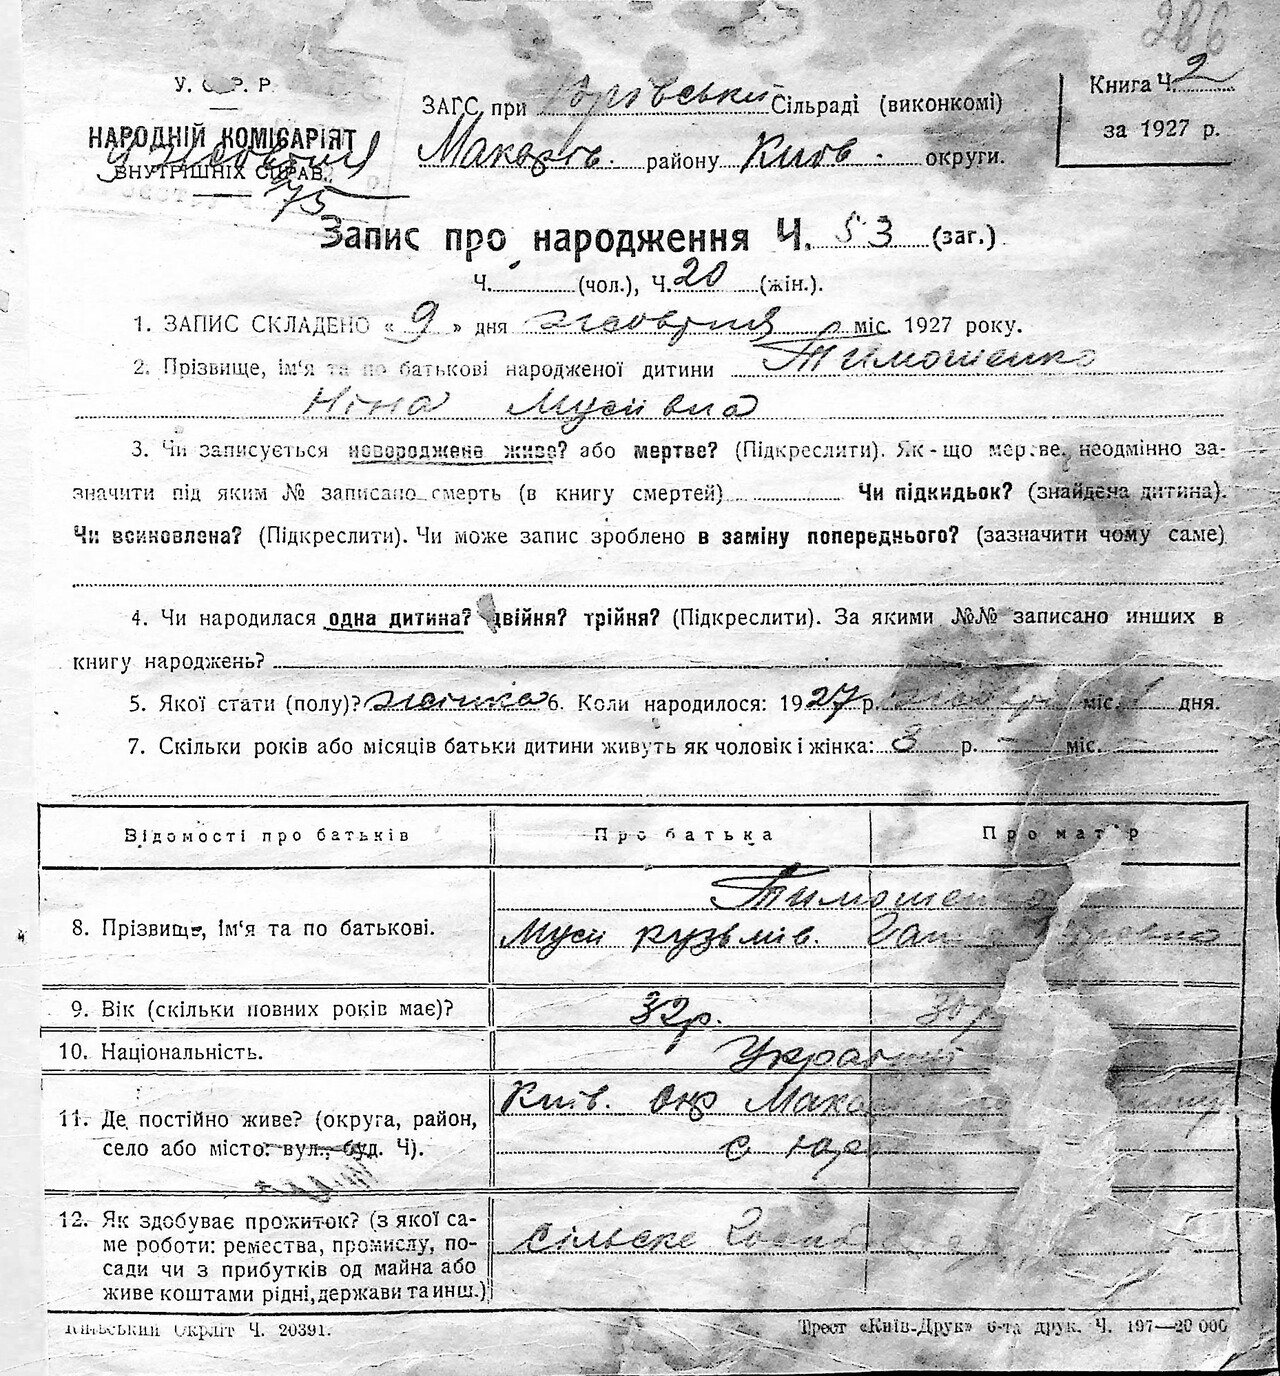 286
У. С. Р. Р.
НАРОДНІЙ КОМІСАРІЯТ
ВНУТРІШНІХ СПРАВ.
9 жовтня
75
ЗАГС при Юрівській Сільраді (виконкомі)
Макарів. району Київ. округи.
Книга Ч. 2
за 1927 р.
Запис про народження Ч. 53 (заг.)
Ч. (чол.), Ч. 20 (жін.).
1. ЗАПИС СКЛАДЕНО « 9 » дня жовтня міс. 1927 року.
2. Прізвище, ім'я та по батькові народженої дитини Тимошенко
Ніна Мусіївна
3. Чи записується новороджене живе? або мертве? (Підкреслити). Як-що мертве, неодмінно за-
значити під яким № записано смерть (в книгу смертей) Чи підкидьок? (знайдена дитина).
Чи всиновлена? (Підкреслити). Чи може запис зроблено в заміну попереднього? (зазначити чому саме)
4. Чи народилася одна дитина? двійня? трійня? (Підкреслити). За якими №№ записано инших в
книгу народжень?
5. Якої стати (полу)? жіноча 6. Коли народилося: 1927 р. жовтня міс. 1 дня.
7. Скільки років або місяців батьки дитини живуть як чоловік і жінка: 8 р. — міс. —
Відомості про батьків Про батька Про матір
8. Прізвище, ім'я та по батькові.
Тимошенко
Мусій Кузьмів.
9. Вік (скільки повних років має)? 32р. 30р
10. Національність. Україн
11. Де постійно живе? (округа, район,
село або місто: вул., буд. Ч).
Київ. окр Мака
с Юр
12. Як здобуває прожиток? (з якої са-
ме роботи: ремества, промислу, по-
сади чи з прибутків од майна або
живе коштами рідні, держави та инш.)
сільске господар
Київський Окрліт Ч. 20391.
Трест «Київ-Друк» 6-та друк. Ч. 197—20 000